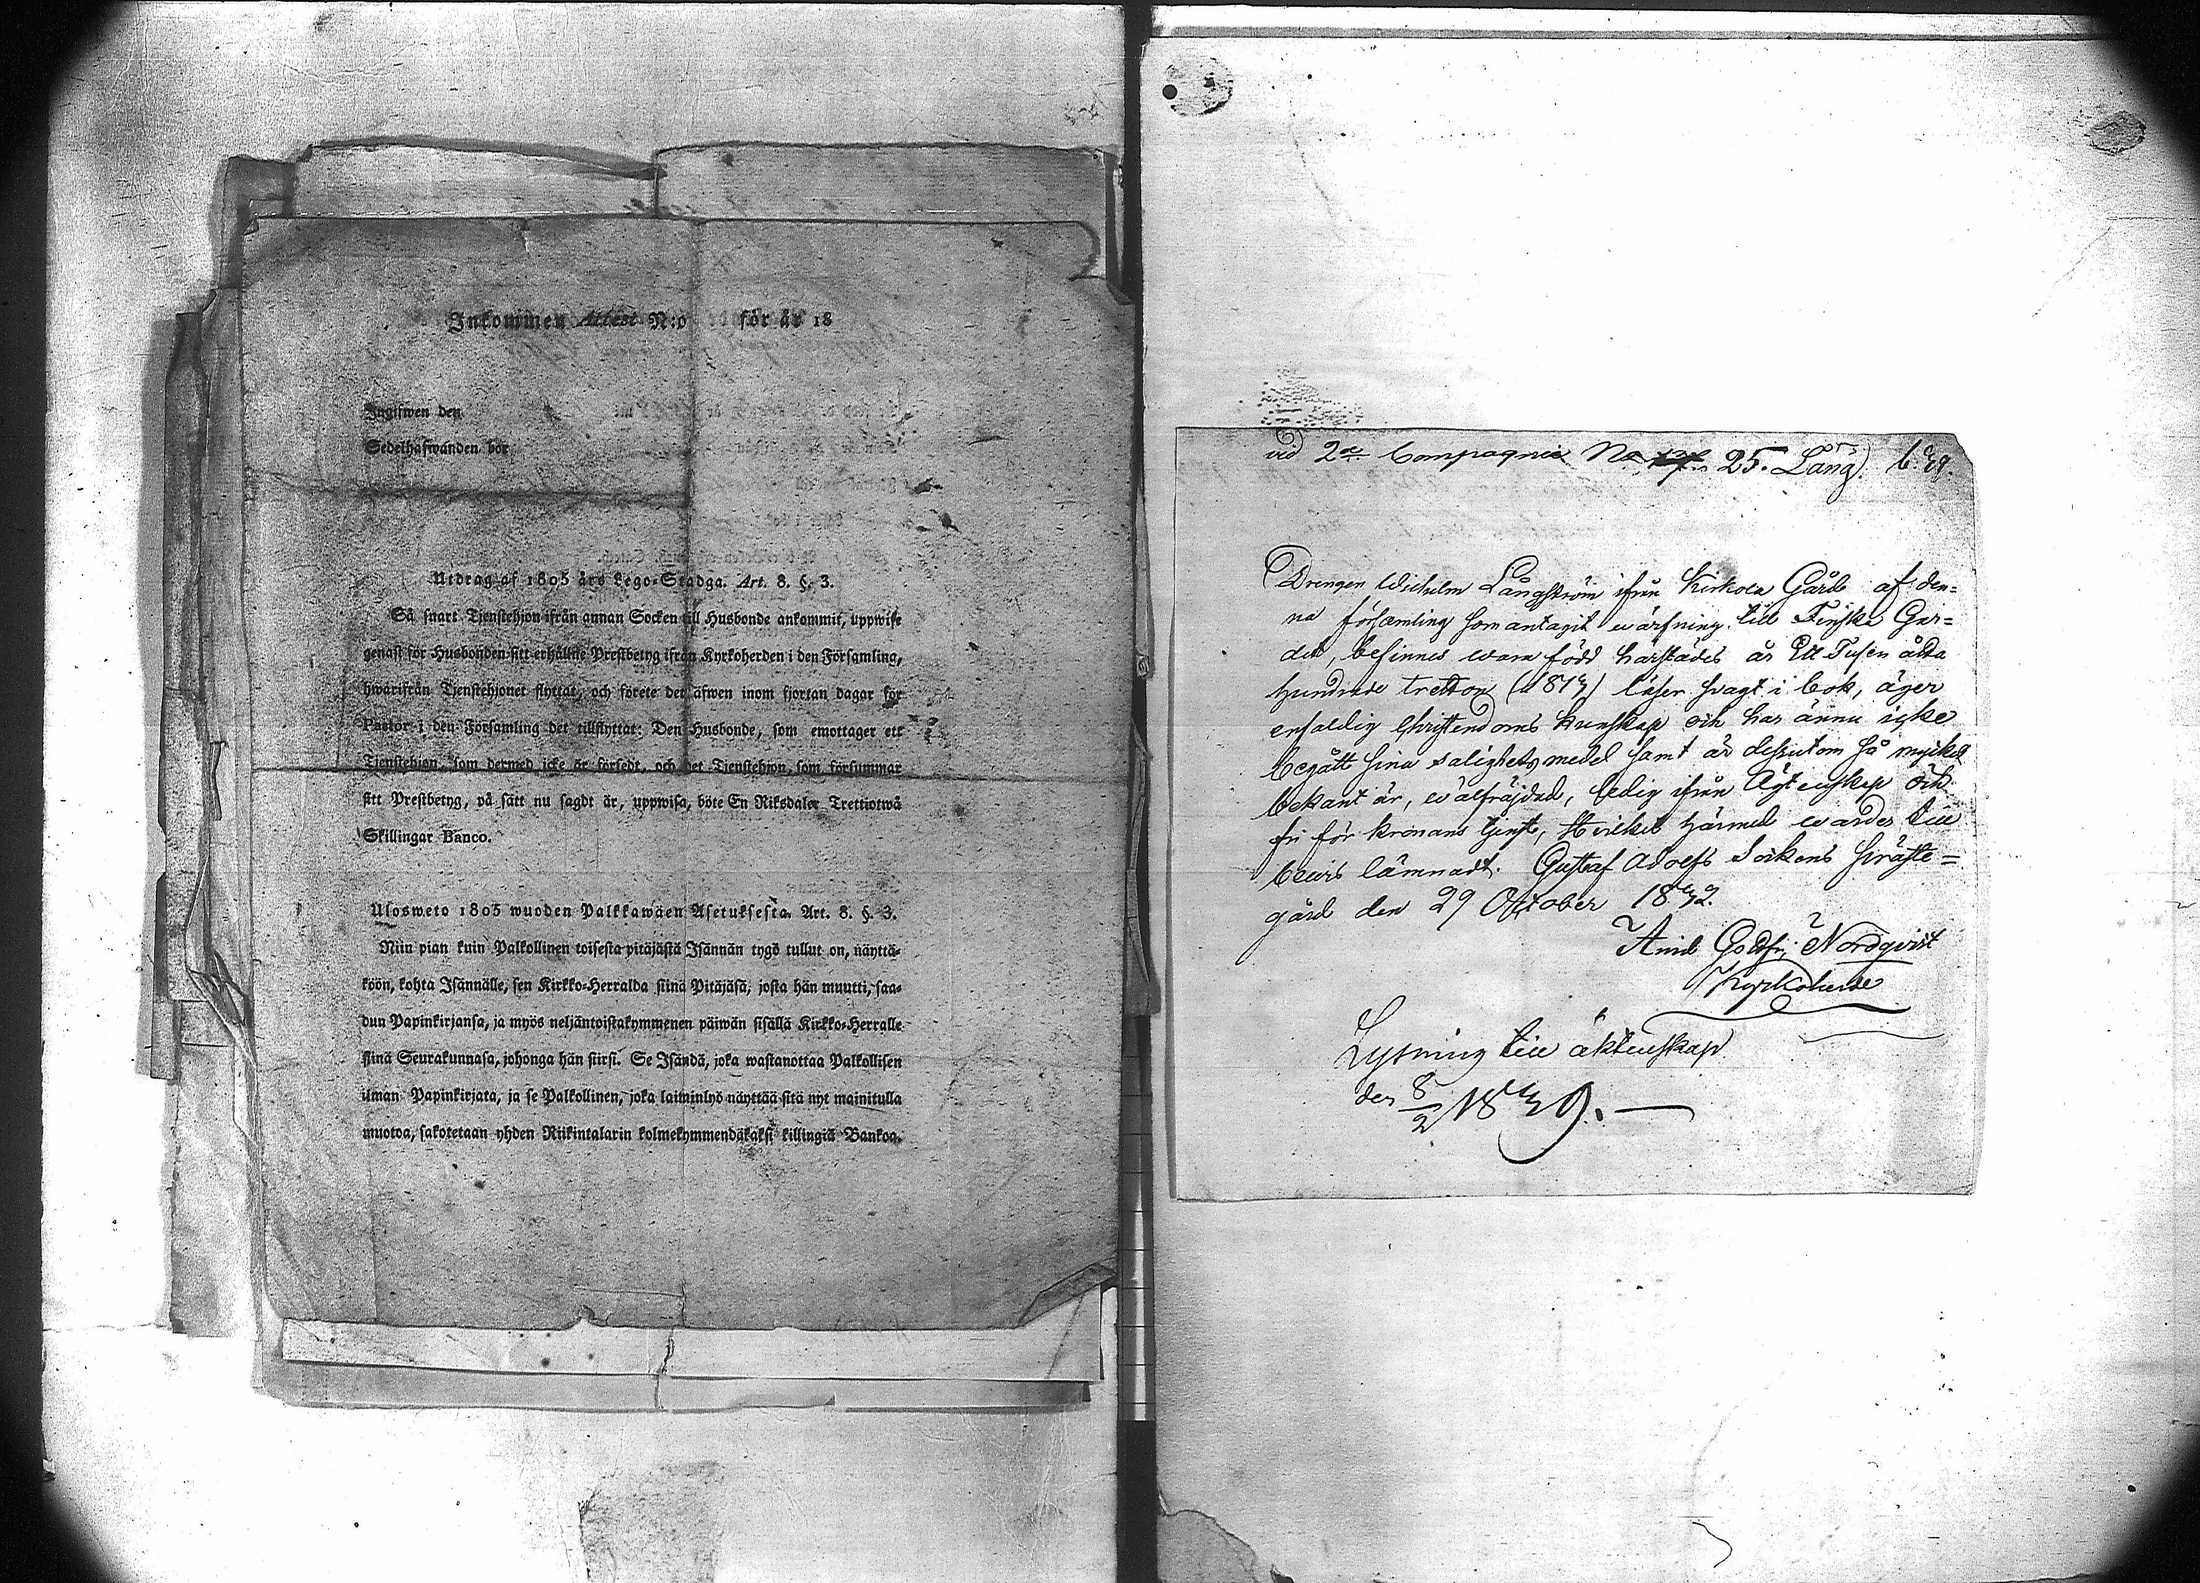 Inkommen Attest N:o för år 18
Ingifwen den
Sedelhafwanden bor
Utdrag af 1805 års Lego-Stadga. Art. 8. §. 3.
Så snart Tjenstehjon ifrån annan Socken till Husbonde ankommit, uppwise
genast för Husbonden sitt erhållne Prestbetyg ifrån Kyrkoherden i den Församling,
hwarifrån Tjenstehjonet flyttat, och förete det äfwen inom fjortan dagar för
Pastor i den Församling det tillflyttat: Den Husbonde, som emottager ett
Tjenstehjon, som dermed icke är försedt, och det Tjenstehjon, som försummar
sitt Prestbetyg, på sätt nu sagdt är, uppwisa, böte En Riksdaler Trettiotwå
Skillingar Banco.
Ulosweto 1805 wuoden Palkkawäen Asetuksesta. Art. 8. §. 3.
Niin pian kuin Palkollinen toisesta pitäjästä Isännän tygö tullut on, näyttä-
köön, kohta Isännälle, sen Kirkko-Herralda siinä Pitäjäsä, josta hän muutti, saa-
dun Papinkirjansa, ja myös neljäntoistakymmenen päiwän sisällä Kirkko-Herralle
siinä Seurakunnasa, johonga hän siirsi. Se Isändä, joka wastanottaa Palkollisen
ilman Papinkirjata, ja se Palkollinen, joka laiminlyö näyttää sitä nyt mainitulla
muotoa, sakotetaan yhden Riikintalarin kolmekymmendäkaksi killingiä Bankoa.
vid 2a Compagniet No 25. Lång
Drengen Wilhelm Långström ifrån Kirkola Gård af den-
na församling som antagit wärfning till Finska Gar-
det, befinnes wara född härstädes år Ett Tusen åtta
hundrade tretton (1813) läser swagt i bok, äger
enfaldig Christendoms kunskap och har ännu icke
begått sina salighets medel samt är dessutom så mycket
bekant är, wälfräjdad, ledig ifrån Ägtenskap och
fri för kronans tjenst, Hvilket härmed warder till
bewis lämnadt. Gustaf Adolfs Sockens Präste-
gård den 29 October 1832.
Arvid Gottfr: Nordqvist
Kyrkoherde
Lysning till äktenskap
den 8/2 1839. —